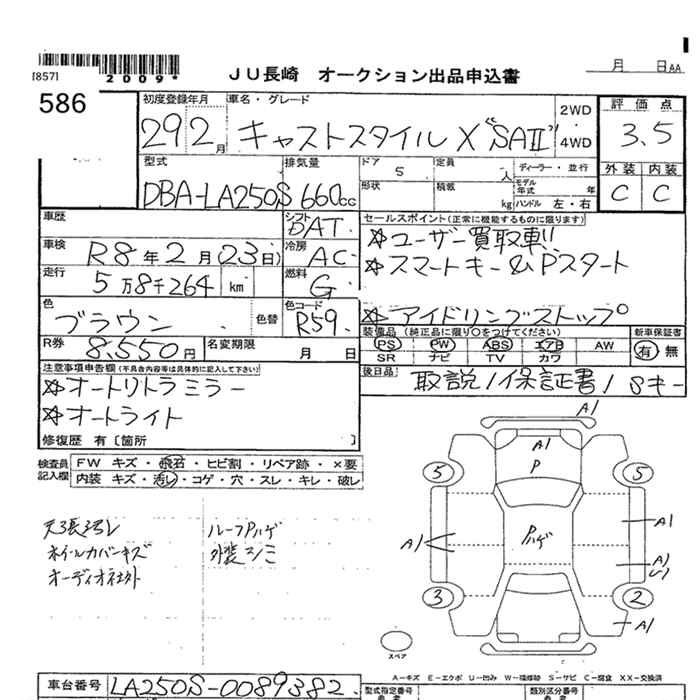 月 日AA
[857]
2009*
JU長崎 オークション出品申込書
586
初度登録年月 車名・グレード
29 2月 キャストスタイルX "SAⅡ"
2WD
4WD
評価点
3.5
外装 内装
C C
型式 排気量
DBA-LA250S 660cc
ドア 5 定員 人 ディーラー・並行
形状 積載 kg モデル年式 年
ハンドル 左・右
車歴 シフト DAT
車検 R8年2月(23日) 冷房 AC
走行 5万8千264 km 燃料 G
色 ブラウン 色替 色コード R59.
R券 8,550円 名変期限 月 日
セールスポイント(正常に機能するものに限ります)
☆ユーザー買取車!!
☆スマートキー&Pスタート
☆アイドリングストップ。
装備品(純正品に限り○をつけてください) 新車保証書
PS PW ABS エアB AW 有・無
SR ナビ TV カワ
後日品 取説/保証書/Sキー
注意事項申告欄(不具合内容等は具体的に記入して下さい)
☆オートリトラミラー
☆オートライト
修復歴 有〔箇所 〕
検査員記入欄
FW キズ・飛石・ヒビ割・リペア跡・×要
内装 キズ・汚レ・コゲ・穴・スレ・キレ・破レ
天張汚レ
ホイルカバーキズ
オーディオ社外
ルーフPハゲ
外装シミ
A1
A1
P
5 5
Pハゲ
A1
A1
A1
U1
3 2
A1
スペア
A-キズ E-エクボ U-凹み W-補修跡 S-サビ C-腐食 XX-交換済
車台番号 LA250S-0089382.
型式指定番号
類別区分番号